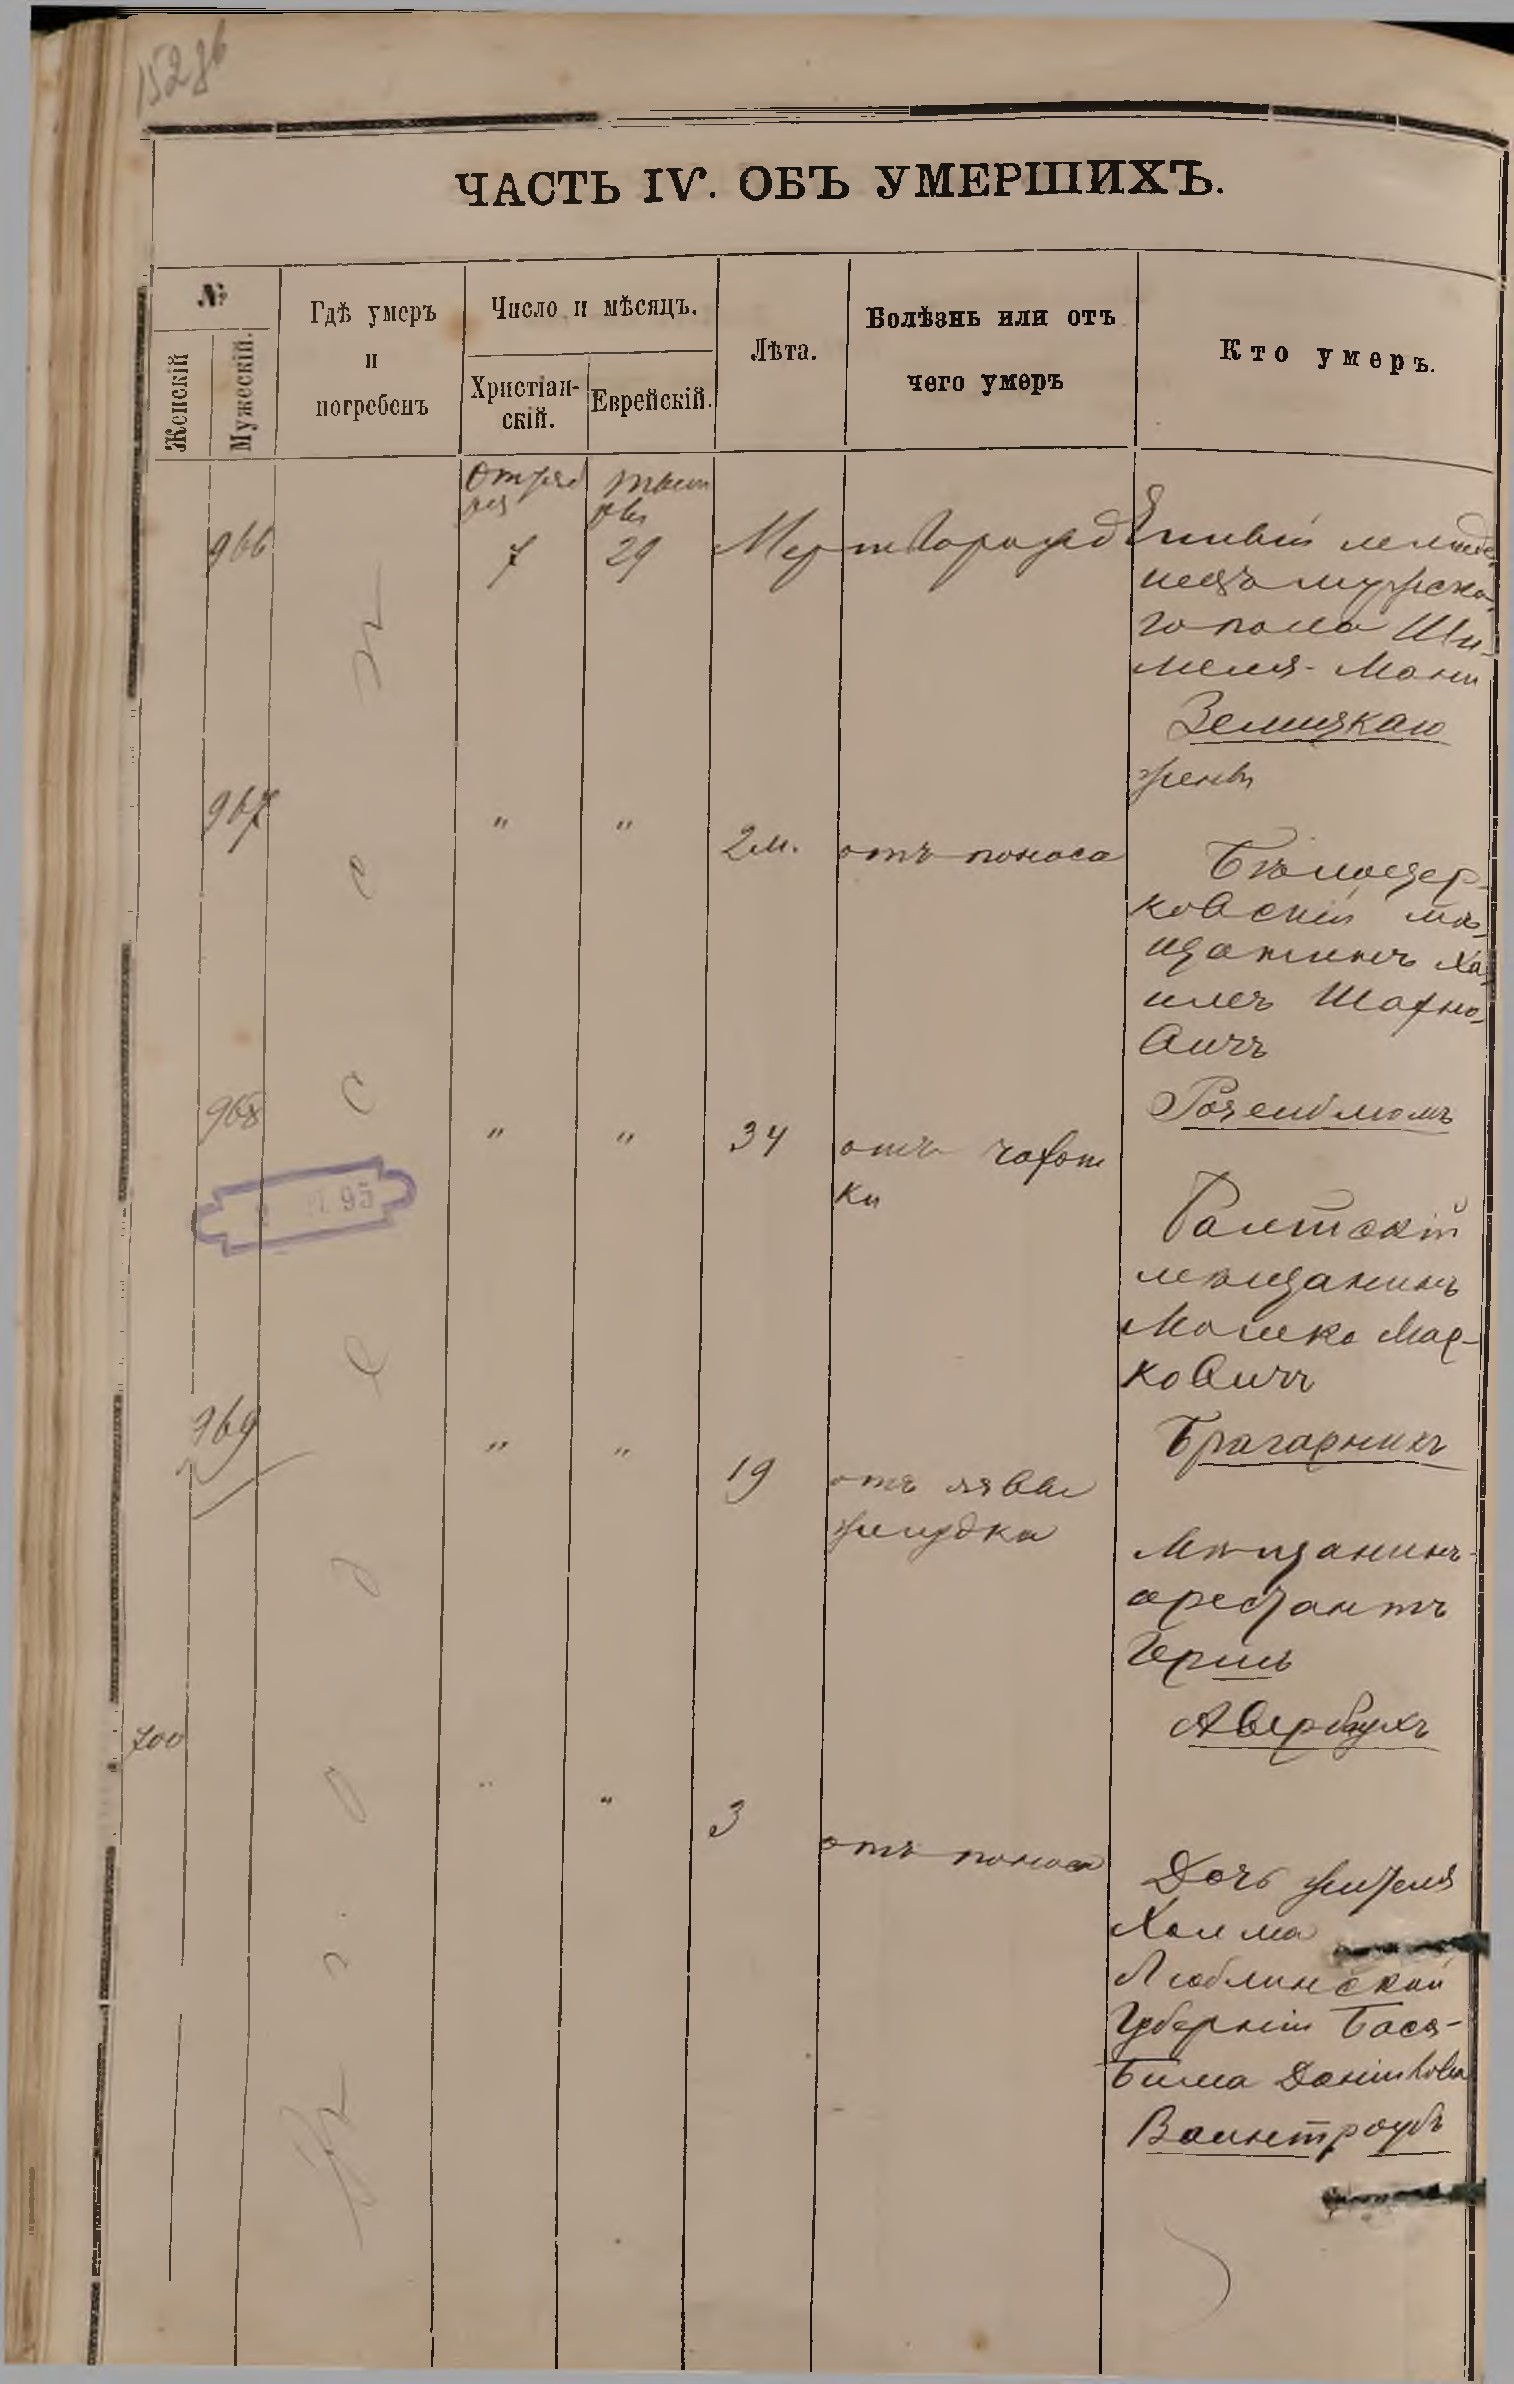 152 об
ЧАСТЬ IV. ОБЪ УМЕРШИХЪ.
№
Женскій
Мужескій.
Гдѣ умеръ
и
погребенъ
Число и мѣсяцъ.
Христіан-
скій.
Еврейскій.
Лѣта.
Болѣзнь или отъ
чего умеръ
Кто умеръ.
966
7
29
Мертворожд
енный младе
нецъ мужска-
го пола Ши-
меля- Мани
Зелицкаю
967
"
"
2 м.
отъ поноса
Бѣлоцер-
ковскій мѣ
щанинъ Ха
имъ Шафно
вичъ
Розенблюмъ
968
"
"
34
отъ чахот
ки
Балтскій
мѣщанинъ
Мошко Мар-
ковичъ
Брагарникъ
95
969
"
"
19
отъ язвы
желудка
Мѣщанинъ-
арестантъ
Гершъ
Авербухъ
700
"
"
3
отъ поноса
Дочь жителя
Холма
Люблинской
Губерніи Бася-
Бима
Ваинтраубъ
Одесса